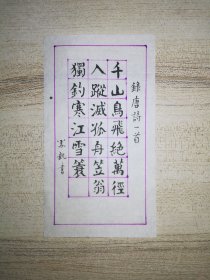 錄唐詩一首
千山鳥飛絕萬徑
人蹤滅孤舟笠翁
獨釣寒江雪簑
書